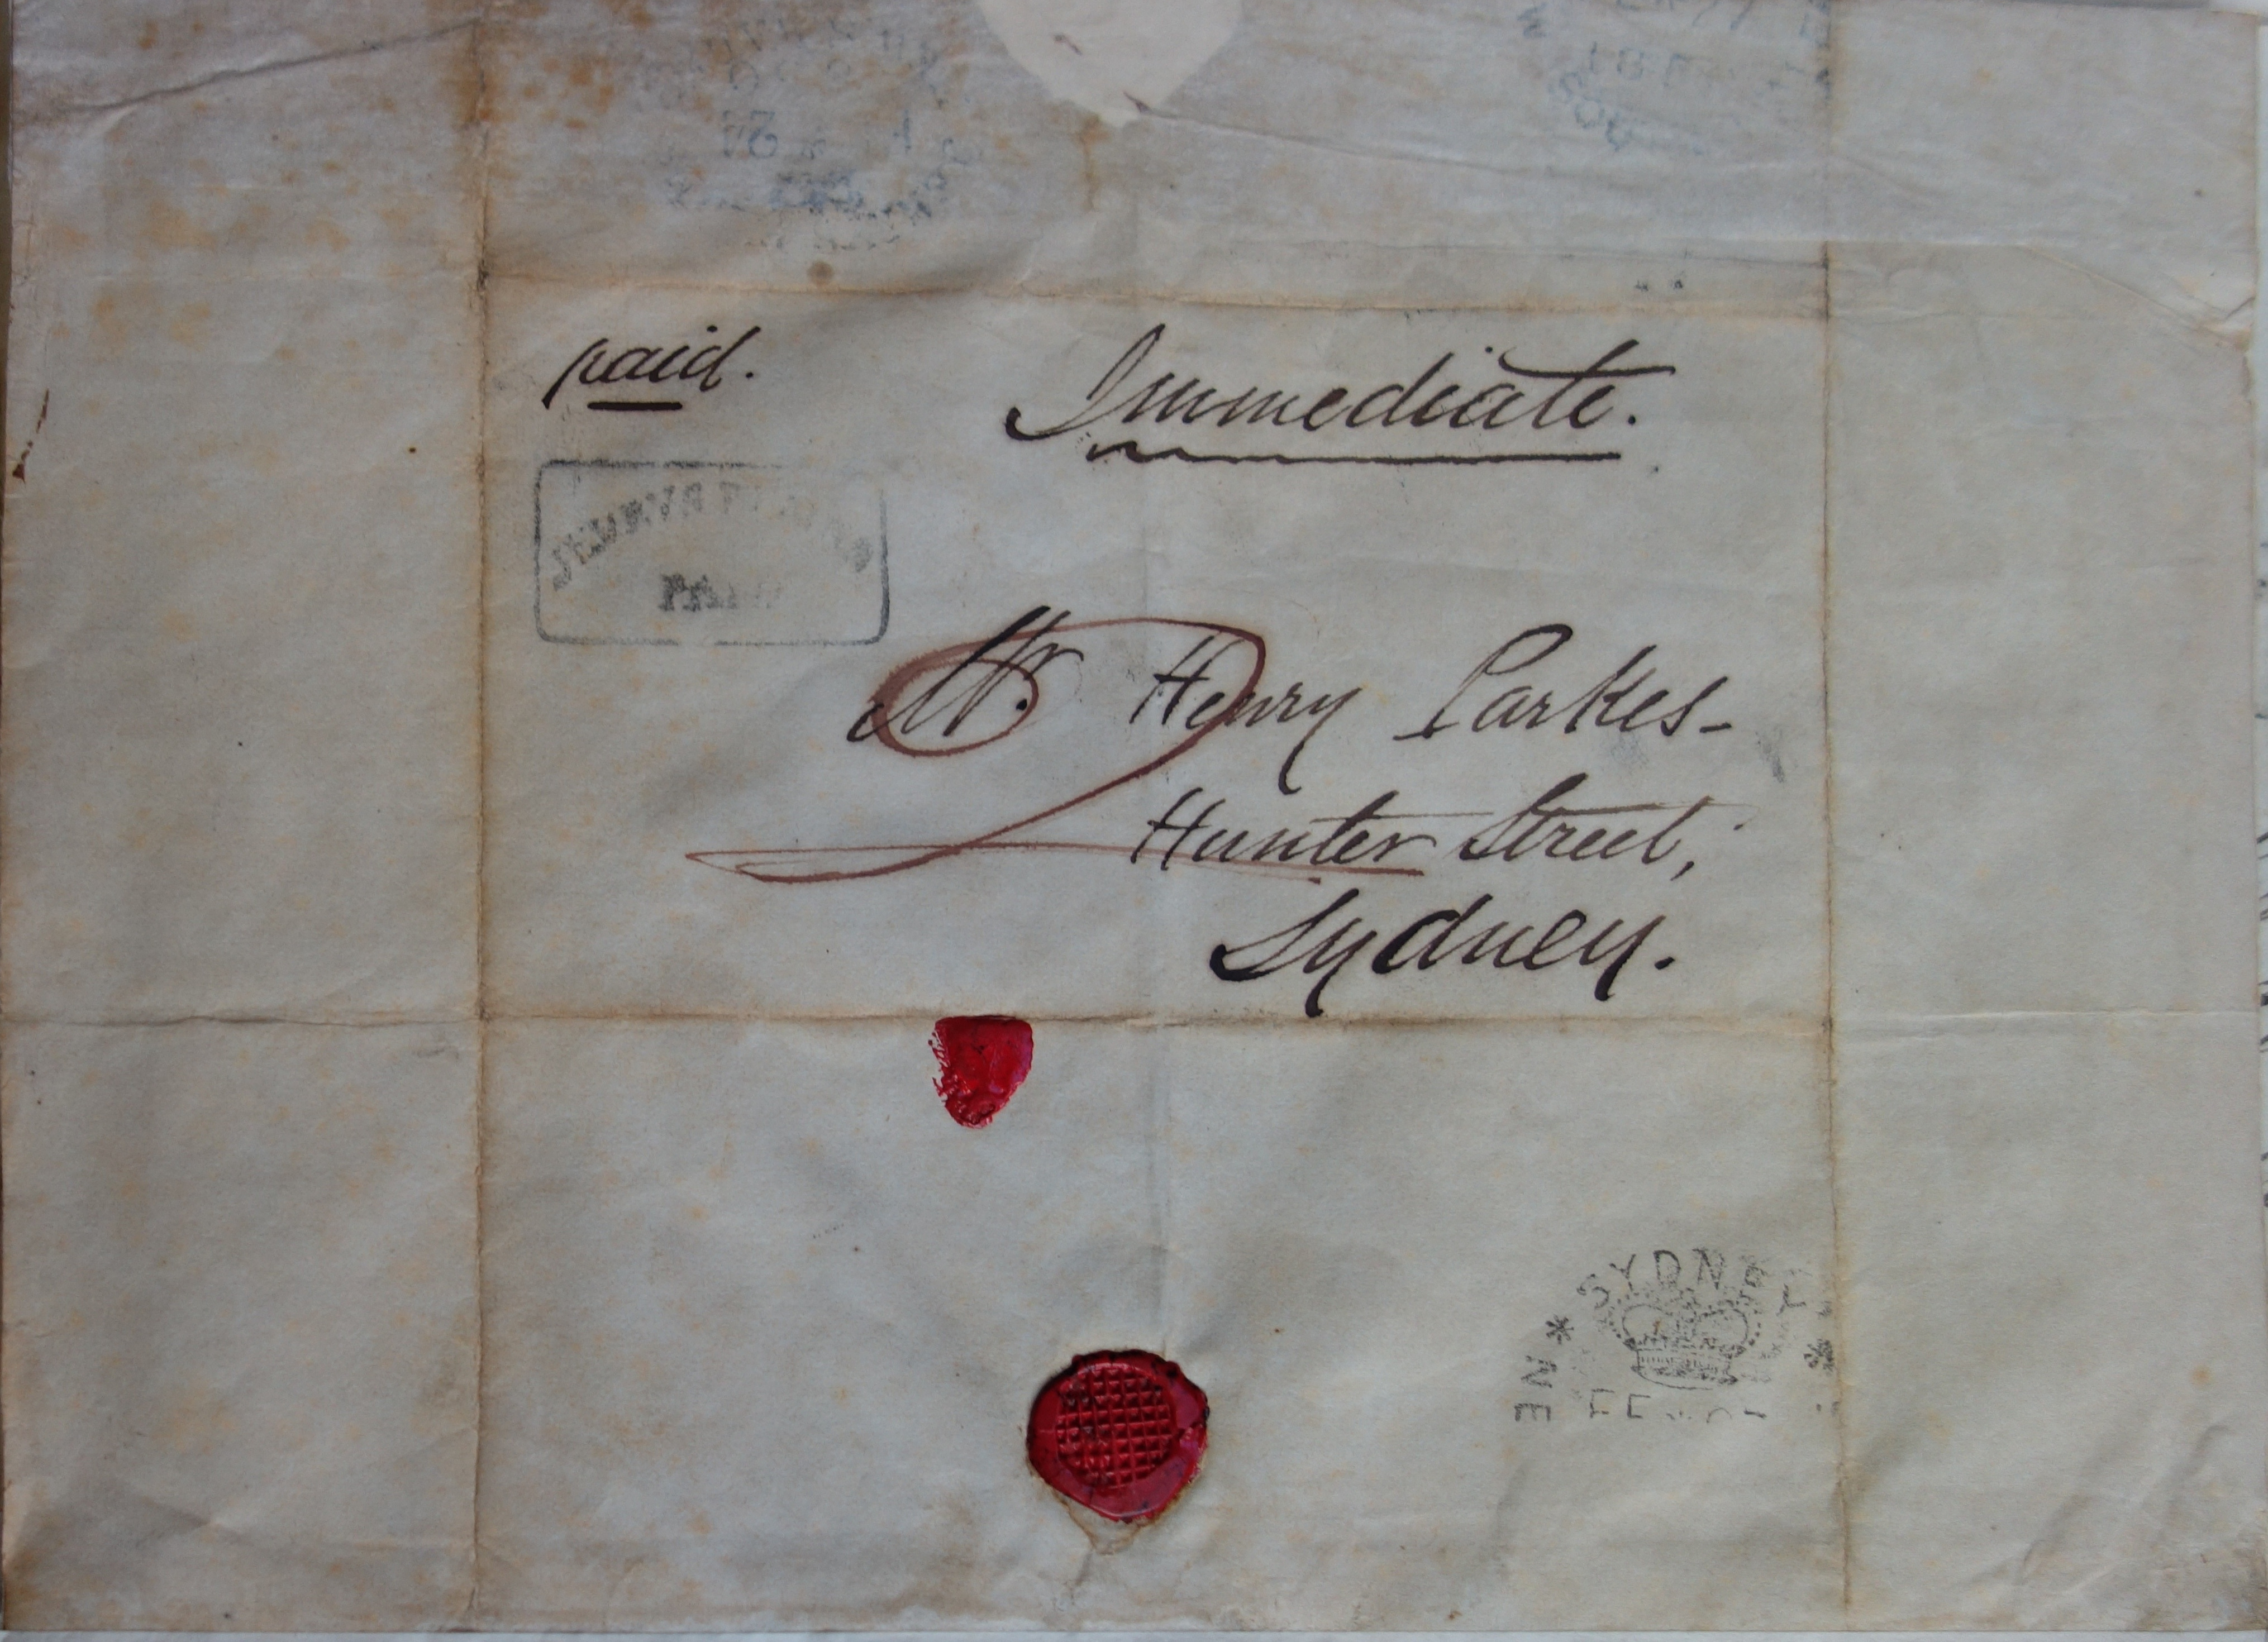 paid.
Immediate.
PAID
2
Mr. Henry Parkes-
Hunter Street,
Sydney.
* SYDNEY *